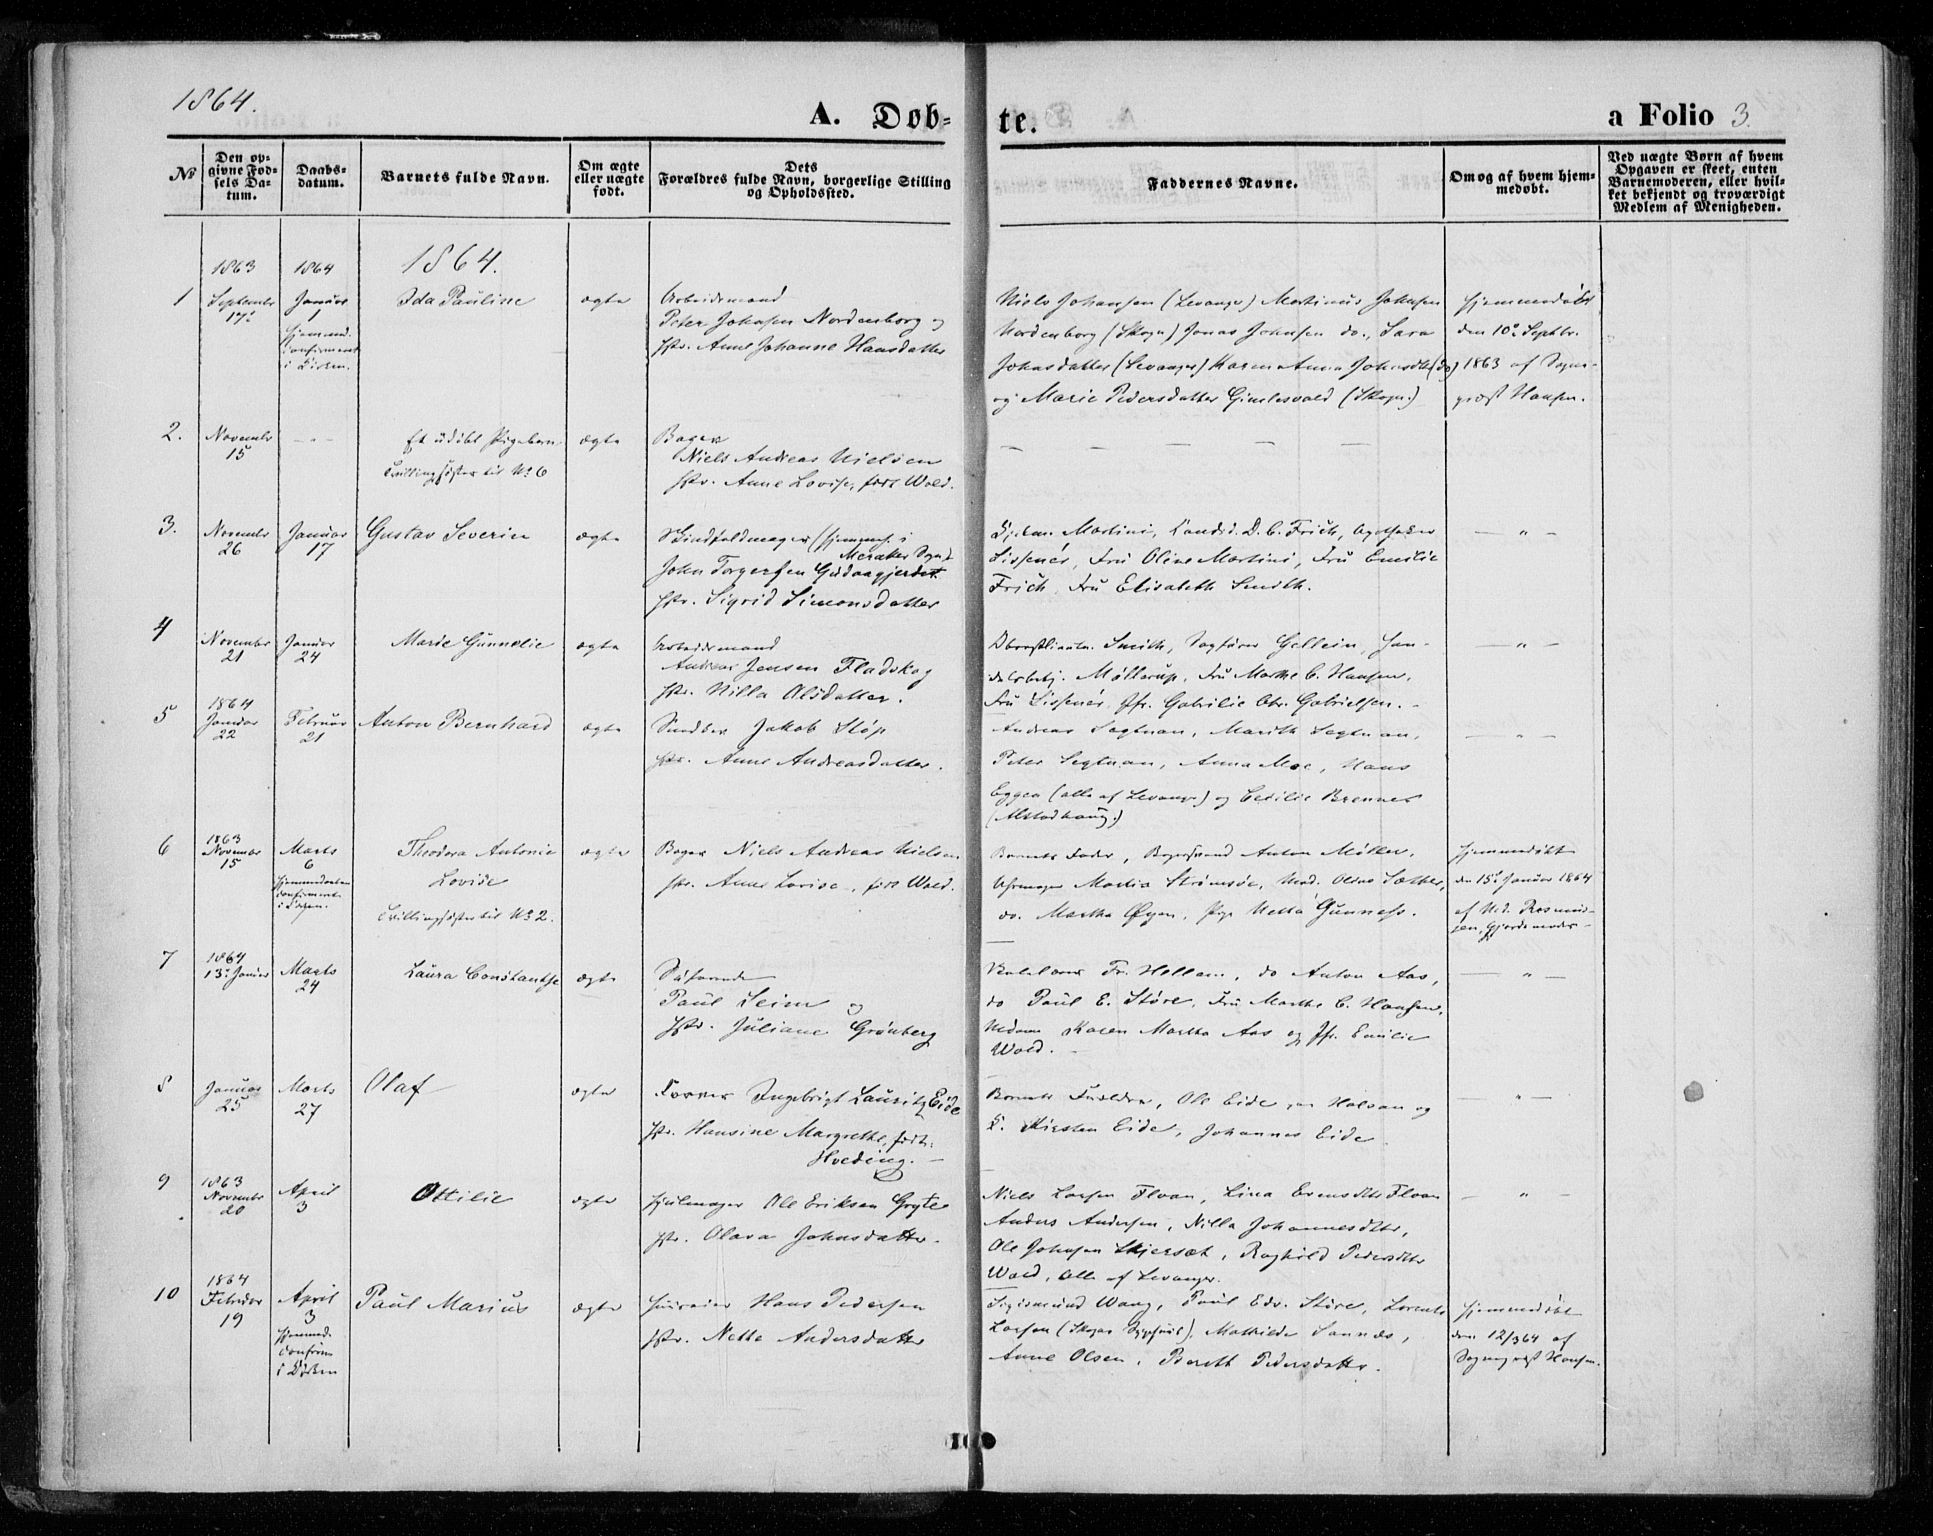 1864.
A. Døb-
te.
a Folio 3.
No
Den op-
givne Fød-
sels Da-
tum.
Daabs-
datum.
Barnets fulde Navn.
Om ægte
eller uægte
født.
Dets
Forældres fulde Navn, borgerlige Stilling
og Opholdssted.
Faddernes Navne.
Om og af hvem hjem-
medøbt.
Ved uægte Børn af hvem
Opgaven er skeet, enten
Barnemoderen, eller hvil-
ket bekjendt og troværdigt
Medlem af Menigheden.
1863
1864
1864.
1
September
17
Januar
1
hjemmed.
confirmeret
i Kirken.
Ida Pauline
ægte
Arbeidsmand
Peter Johnsen Nordenborg og
Hstr. Anne Johanne Hansdatter
Niels Johansen (Levanger) Martinus Johnsen
Nordenborg (Skogn) Jonas Johnsen do., Sara
Johnsdatter (Levanger) Karen Anna Johnsdtr (do)
og Marie Pedersdatter Gimlesvald (Skogn.)
hjemmedøbt
den 10de Septbr.
1863 af Sogne-
præst Hansen.
2.
November
15
Et udöbt Pigebarn
Tvillingsøster til No 6
ægte
Bager
Niels Andreas Nielsen
Hstr. Anne Lovise, født Wold.
3.
November
26
Januar
17
Gustav Severin
ægte
Skindfeldmager (hjemmeh. i
Meraker Sogn)
John Torgersen Gudaagjerdet
Hstr. Sigrid Simonsdatter
Martini, Kandid. D. C. Frich, Apotheker
Lissner, Fru Oline Martini, Fru Emilie
Frich, Fru Elisabeth Smith.
4
November
21
Januar
24
Marie Gunnelie
ægte
Arbeidsmand
Andreas Jensen Fladskog
Hstr. Nilla Olsdatter.
Oberstlieutn. Smith, Sagfører Gellein, Han-
delsbetj. Møllerup, Fru Marthe C. Hansen,
Fru Lissner, Jfr. Gabrielle Chr. Gabrielsen.
5
1864
Januar
22
Februar
21
Anton Bernhard
ægte
Jakob Støp
Hstr. Anne Andreasdatter.
Andreas Segtnan, Marith Segtnan,
Peter Segtnan, Anna Moe, Hans
Eggen (alle af Levanger) og Cecilie Brenner
(Alstadhaug.)
6
1863
November
15
Marts
6
hjemmedaaben
confirmeret
Theodora Antonie
Lovise
Tvillingsøster til No 2.
ægte
Bager Niels Andreas Nielsen
Hstr. Anne Lovise, født Wold.
Barnets Fader, Anton Møller,
Martin Strømsøe, Mad. Oline Sæther,
do. Martha Øyen, Pige Netta Gunness.
hjemmedøbt
den 15de Januar 1864
af Md. Rasmus-
sen, Gjordemoder
7
1864
13de Januar
Marts
24
Laura Constantse
ægte
Søfarende
Paul Leim og
Hstr. Juliane Grønberg
Fr. Hollem, do Anton Aas,
do Paul E. Støre, Fru Marthe C. Hansen,
Madam Karen Martha Aas og Jfr. Emilie
Wold.
8
Januar
25
Marts
27
Olaf
ægte
Ingebrigt Lauritz Eide
Hstr. Hansine Margrethe, født
Hveding.
Barnets Forældre, Ole Eide, Halvan og
Kirsten Eide, Johannes Eide
9
1863
November
20
April
3
Ottilie
ægte
Hjulmager Ole Eriksen Gryte
Hstr. Olava Johnsdatter.
Niels Larsen Floan, Lina Evensdtr Floan
Anders Andersen, Nilla Johannesdtr,
Ole Johnsen Skjersæt, Raghild Pedersdtr
Wold, alle af Levanger.
10
1864
Februar
19
April
3
hjemmed.
confirm
i Kirken
Paul Marius
ægte
Huuseier Hans Pedersen
Hstr. Netta Andersdatter
Sigismund Wang, Paul Edv. Støre, Lorents
Larsen (Skogn), Mathilde Sannes,
Anne Olsen, Berith Pedersdatter.
hjemmedøbt
den 12/3 64 af
Sognepræst Hansen.